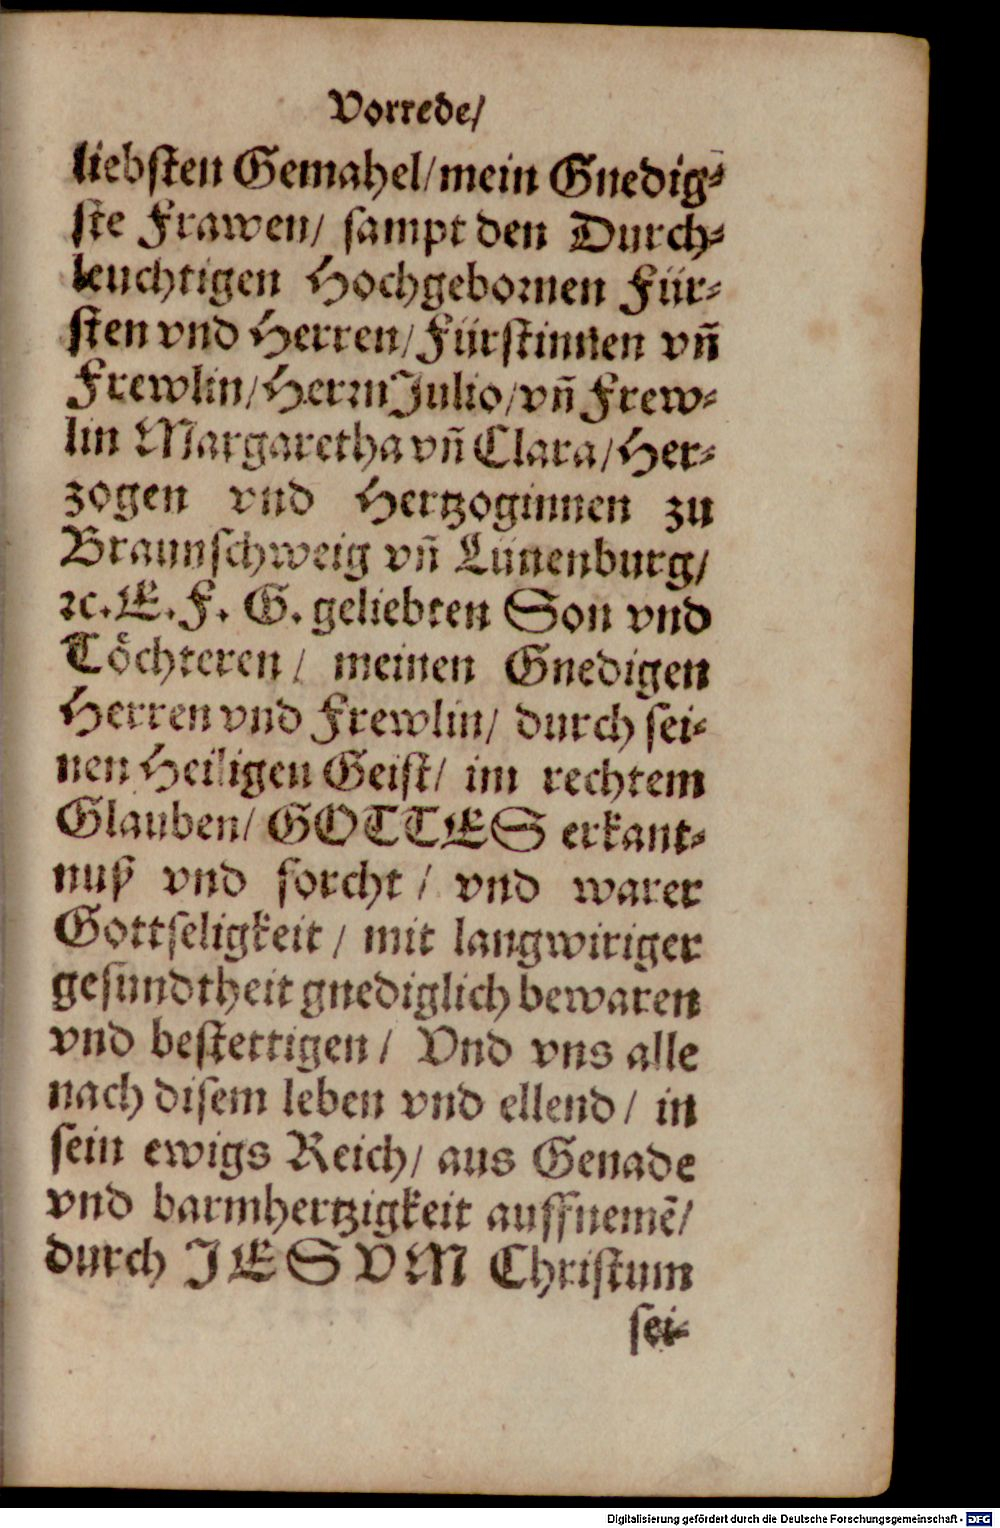 Vorrede/
liebſten Gemahel/mein Gnedig⸗
ſte Frawen/ ſampt den Durch⸗
leuchtigen Hochgebornen Für⸗
ſten vnd Herren/Fürſtinnen vñ
Frewlin/Herrn Julio/vñ Frew⸗
lin Margaretha vñ Clara/Her⸗
zogen vnd Hertzoginnen zu
Braunſchweig vñ Lünenburg/
ꝛc. E. F. G. geliebten Son vnd
Töchteren/ meinen Gnedigen
Herren vnd Frewlin/ durch ſei⸗
nen Heiligen Geiſt/ im rechtem
Glauben/ GOTTES erkant⸗
nuß vnd forcht/ vnd warer
Gottſeligkeit/ mit langwiriger
geſundtheit gnediglich bewaren
vnd beſtettigen/ Vnd vns alle
nach diſem leben vnd ellend/ in
ſein ewigs Reich/ aus Genade
vnd barmhertzigkeit auffnemẽ/
durch JESVM Chriſtum
ſei⸗
Digitalisierung gefördert durch die Deutsche Forschungsgemeinschaft - DFG